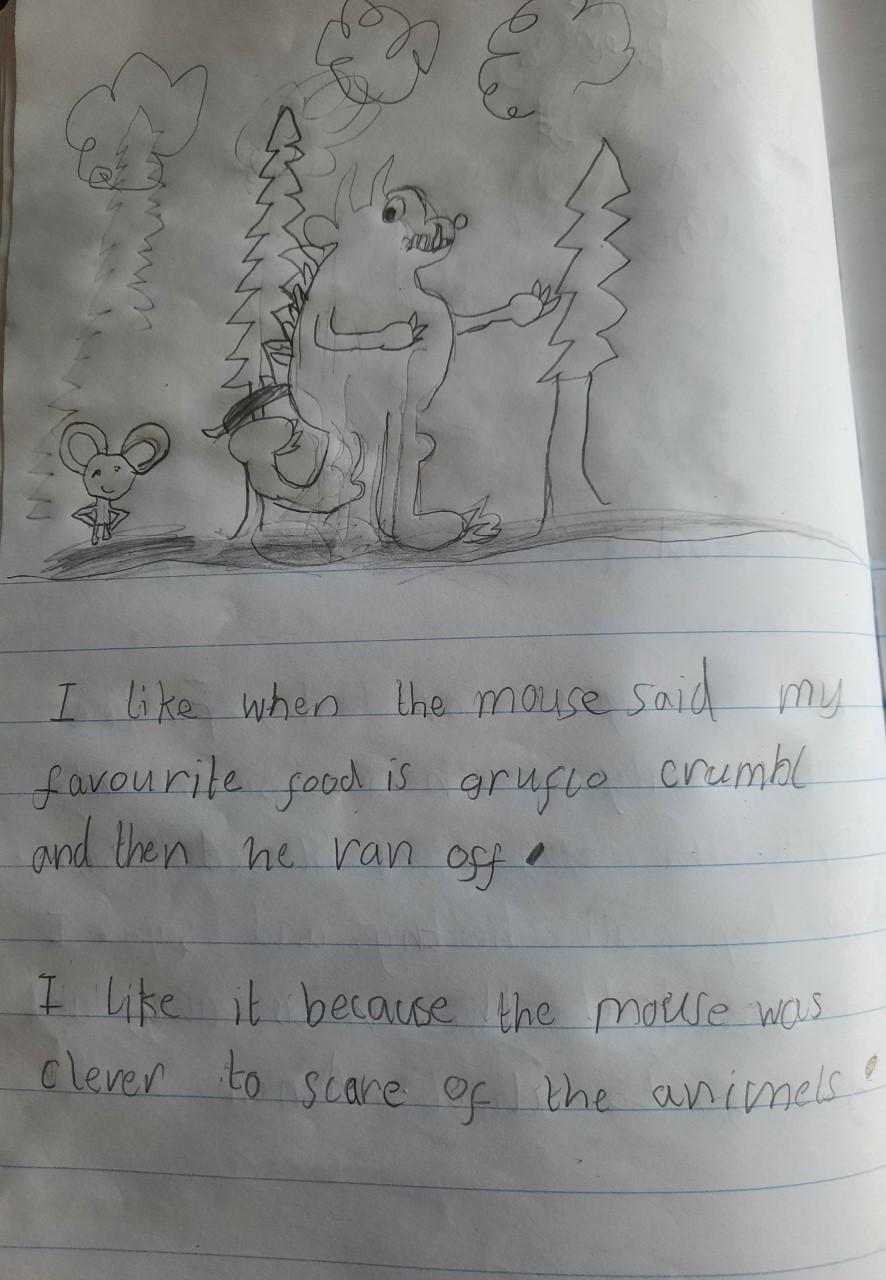 I like when the mouse said my
favourite food is gruflo crumbl
and then he ran off.
I like it because the mouse was
clever to scare of the animels.